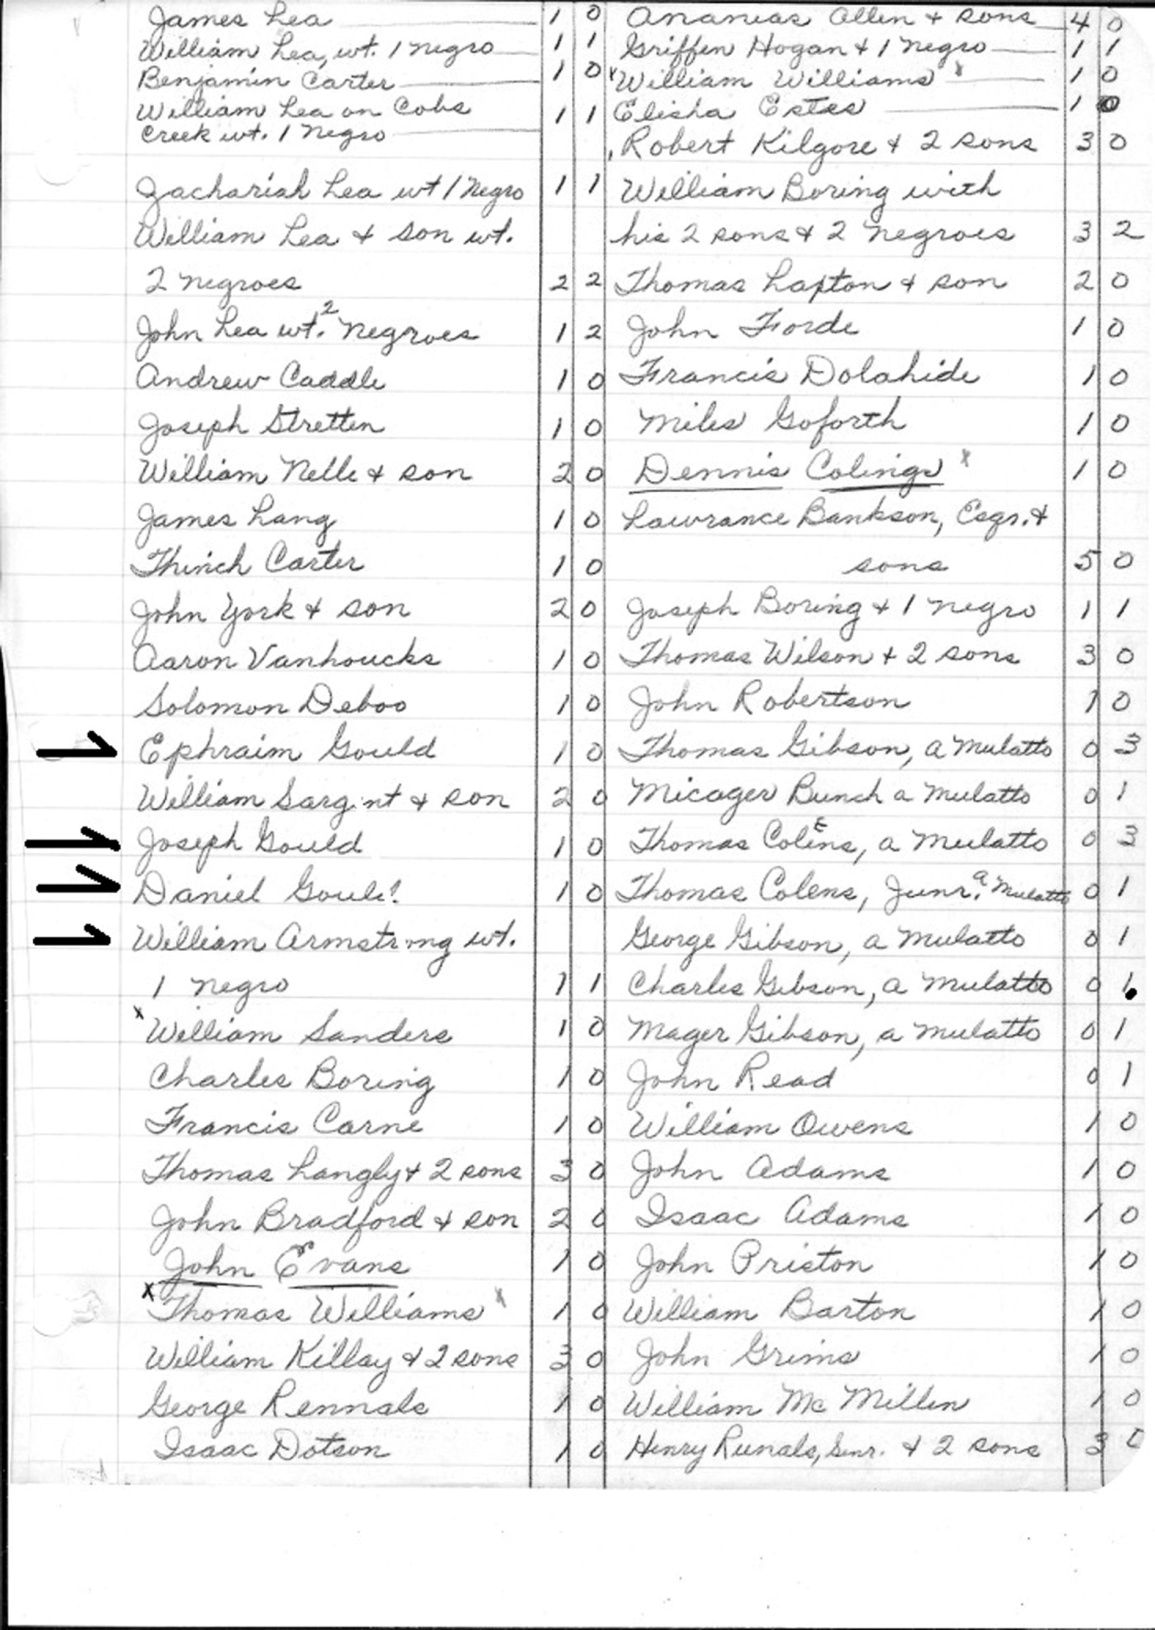 James Lea 1 0
William Lea, wt. 1 negro 1 1
Benjamin Carter 1 0
William Lea on Cobs
Creek wt. 1 Negro 1 1
Zachariah Lea wt 1 Negro 1 1
William Lea & son wt.
2 negroes 2 2
John Lea wt. 2 negroes 1 2
Andrew Caddle 1 0
Joseph Stretten 1 0
William Nelle & son 2 0
James Lang 1 0
Thinch Carter 1 0
John York & son 2 0
Aaron Vanhoucks 1 0
Solomon Deboo 1 0
Ephraim Gould 1 0
William Sargent & son 2 0
Joseph Gould 1 0
Daniel Goule? 1 0
William Armstrong wt.
1 negro 1 1
x William Sanders 1 0
Charles Boring 1 0
Francis Carne 1 0
Thomas Langly & 2 sons 3 0
John Bradford & son 2 0
John Evans 1 0
x Thomas Williams x 1 0
William Killay & 2 sons 3 0
George Rennals 1 0
Isaac Dotson 1 0
Ananias Allen & sons 4 0
Griffen Hogan & 1 negro 1 1
x William Williams x 1 0
Elisha Estes 1 0
Robert Kilgore & 2 sons 3 0
William Boring with
his 2 sons & 2 negroes 3 2
Thomas Lapton & son 2 0
John Forde 1 0
Francis Dolahide 1 0
Miles Goforth 1 0
Dennis Colings x 1 0
Lawrance Bankson, Esqr. &
sons 5 0
Joseph Boring & 1 negro 1 1
Thomas Wilson & 2 sons 3 0
John Robertson 1 0
Thomas Gibson, a mulatto 0 3
Micager Bunch a mulatto 0 1
Thomas Colens, a mulatto 0 3
Thomas Colens, Junr. a mulatto 0 1
George Gibson, a mulatto 0 1
Charles Gibson, a mulatto 0 1
Mager Gibson, a mulatto 0 1
John Read 0 1
William Owens 1 0
John Adams 1 0
Isaac Adams 1 0
John Priston 1 0
William Barton 1 0
John Grims 1 0
William Mc Millen 1 0
Henry Runals, Senr. & 2 sons 3 0